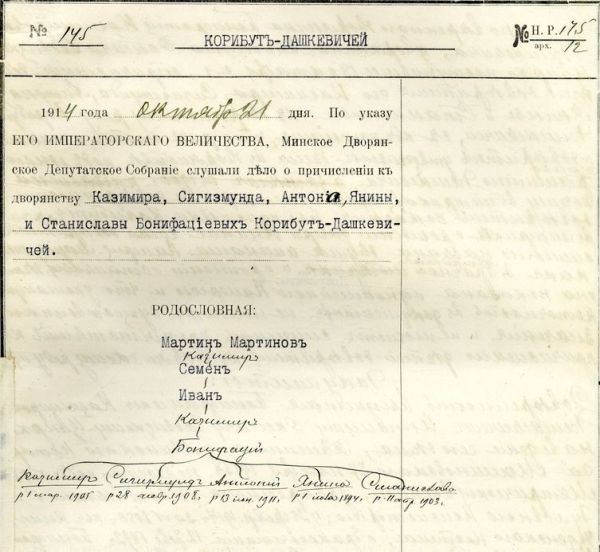 № 145
КОРИБУТЪ-ДАШКЕВИЧЕЙ
№ Н. Р. 145
арх. 12
1914 года октября 21 дня. По указу
ЕГО ИМПЕРАТОРСКАГО ВЕЛИЧЕСТВА, Минское Дворян-
ское Депутатское Собраніе слушали дѣло о причисленіи къ
дворянству Казимира, Сигизмунда, Антонія, Янины,
и Станиславы Бонифаціевыхъ Корибутъ-Дашкеви-
чей.
РОДОСЛОВНАЯ:
Мартинъ Мартиновъ
Казимиръ
Семенъ
Иванъ
Казимиръ
Бонифацій
Казимиръ Сигизмундъ Антоній Янина Станислава
р 1 мар. 1905 р 28 1908 г. р 13 1911. р 1 1894 г. р 11 1903 г.